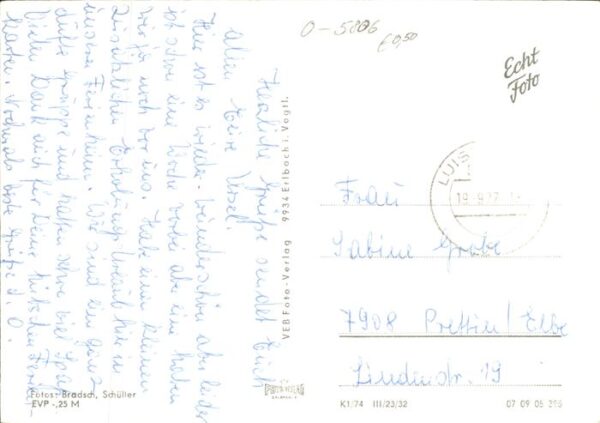 0-5806
€0,50
Echt
Foto
Herzliche Grüße sendet Euch
allen Eure Ursel.
Hier ist es wieder wunderschön aber leider
ist schon eine Woche vorbei aber eine haben
wir ja noch vor uns. Habe einen kleinen
zusätzlichen Erholungsurlaub hier in
unserem Ferienheim. Wir sind eine ganz
dufte Gruppe und hatten schon viel Spaß.
Vielen Dank auch für Deine hübschen Ferien-
karten. Nochmals liebe Grüße d. O.
VEB Foto-Verlag 9934 Erlbach i. Vogtl.
LUIS
19.9.77
Frau
Sabine Grobe
7908 Prettin/Elbe
Lindenstr. 19
Fotos: Bradsch, Schüller
EVP -,25 M
FOTO-VERLAG
ERLBACH
K1/74 III/23/32
07 09 05 256